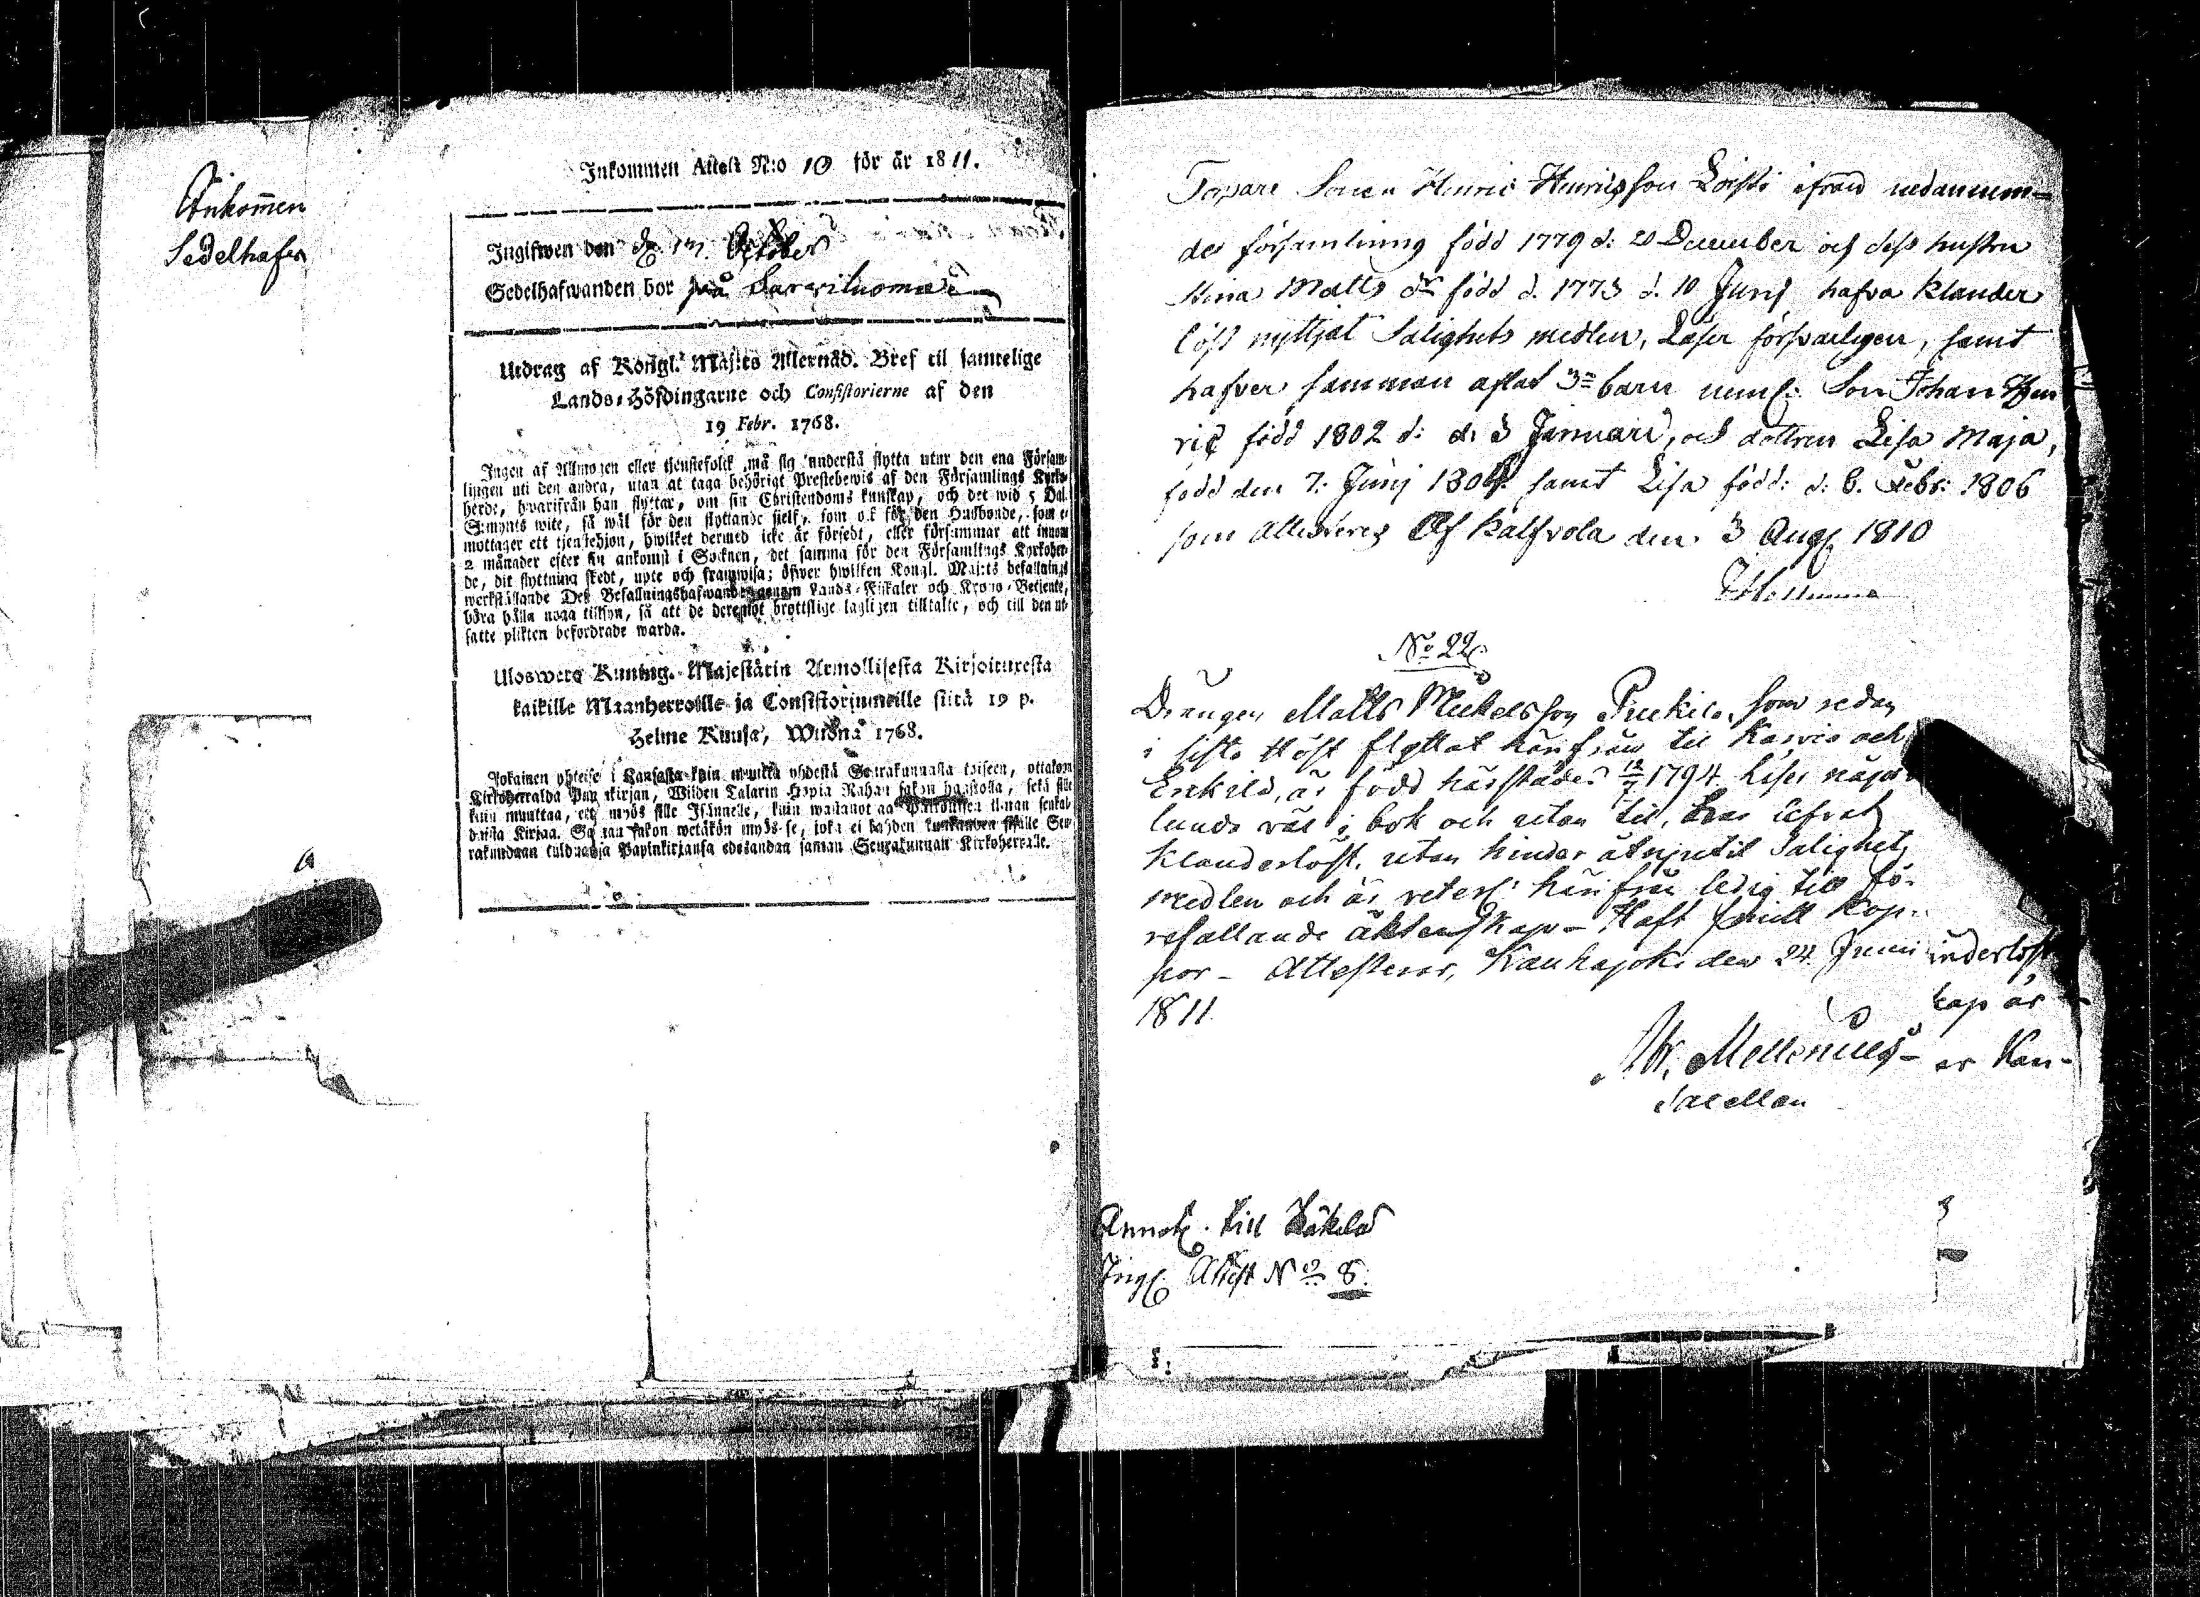 Ankom̅en
Sedelhafen
Inkommen Attest N:o 10 för år 1811.
Ingifwen den d. 17. October
Sedelhafwanden bor på Sarwiluoma
Utdrag af Kongl. Maj:ts Allernåd. Bref til samtelige
Lands-Höfdingarne och Consistorierne af den
19 Febr. 1768.
Ingen af Allmogen eller tjenstefolk må sig understå flytta utur den ena Församlingen
uti den andra, utan at taga behörigt Prestebewis af den Församlings Kyrko-
herde, hvarifrån han flyttar, om sin Christendoms kunskap, och det wid 5 Dal.
S:mynts wite, så wäl för den flyttande sjelf, som ock för den Husbonde, som e
mottager ett tjenstehjon, hwilket dermed icke är försedt, eller försummar att innom
2 månader efter sin ankomst i Socknen, det samma för den Församlings Kyrkoher-
de, dit flyttning skedt, upte och framwisa; öfwer hwilken Kongl. Maj:ts befallnings
werkställande Des Befallningshafwande genom Lands-Fiskaler och Krono-Betjente,
böra hålla noga tillsyn, så att de deremot brottslige lagligen tilltalte, och till den ut-
satte plikten befordrade warda.
Uloswets Kuning. Majestätin Armollisesta Kirjoituxesta
kaikille Maanherroille ja Consistoriumeille siitä 19 p.
Helme Kuusa, Wuonna 1768.
Jokainen yhteise Kansasta kuin muutta yhdestä Seurakunnasta toiseen, ottakon
Kirkoherralda Papinkirjan, Wiiden Talarin Hopia Rahan sakon haastolla, sekä sille
kuin muuttaa, että myös sille Isännelle, kuin wastanottaa Palkollisen ilman senkal-
daista Kirjaa. Saman sakon wetäkön myös se, joka ei kahden kuukauden sisälle Seu-
rakundaan tulduansa Papinkirjansa edesandaa saman Seurakunnan Kirkoherralle.
Torpare Sonen Henric Henricsson Loisti ifrån nedannem-
de församling född 1779 d: 20 December och dess hustru
Stina Matts dr född d. 1773 d. 10 Junj hafva klander
löst nyttjat Salighets medlen, Läser försvarligen, samt
hafver samman aflat 3ne barn neml: Son Johan Hen
ric född 1802 d: d. 3 Januari, och dottren Lisa Maja,
född den 7. Junj 1804. samt Lisa född: d: 8. Febr: 1806
som attesteres Af Kalfvola den 3 Aug. 1810
No 22.
Drängen Matts Mickelsson Pukila, som redan
i sista Höst flyttat härifrån til Karvia och
Enkild, är född härstädes 12/7 1794 Läser någor
lunda väl i bok och utan til, har lefvat
klanderlöst, utan hinder åtnjutit Salighets
medlen och är veterl: härifrån ledig till fö-
refallande äktenskap - Haft skilt Kop-
por - Attesteras, Kauhajoki den 24 Junii
1811.
inderlöst
kap är
er Kau-
Mellenius
Sacellan
Annot. till Häkelä
Ing. Attest No 8.